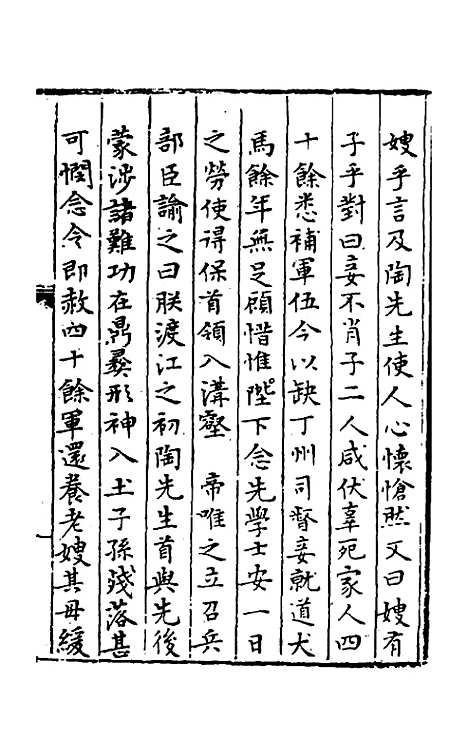 嫂乎言及陶先生使人心懷愴然又曰嫂有
子乎對曰妾不肖子二人咸伏辜死家人四
十餘悉補軍伍今以缺丁州司督妾就道犬
馬餘年無足顧惜惟陛下念先學士安一日
之勞使得保首領入溝壑　帝唯之立召兵
部臣諭之曰朕渡江之初陶先生首與先後
蒙涉諸難功在鼎彝形神入土子孫殘落甚
可憫念令即赦四十餘軍還養老嫂其毋緩